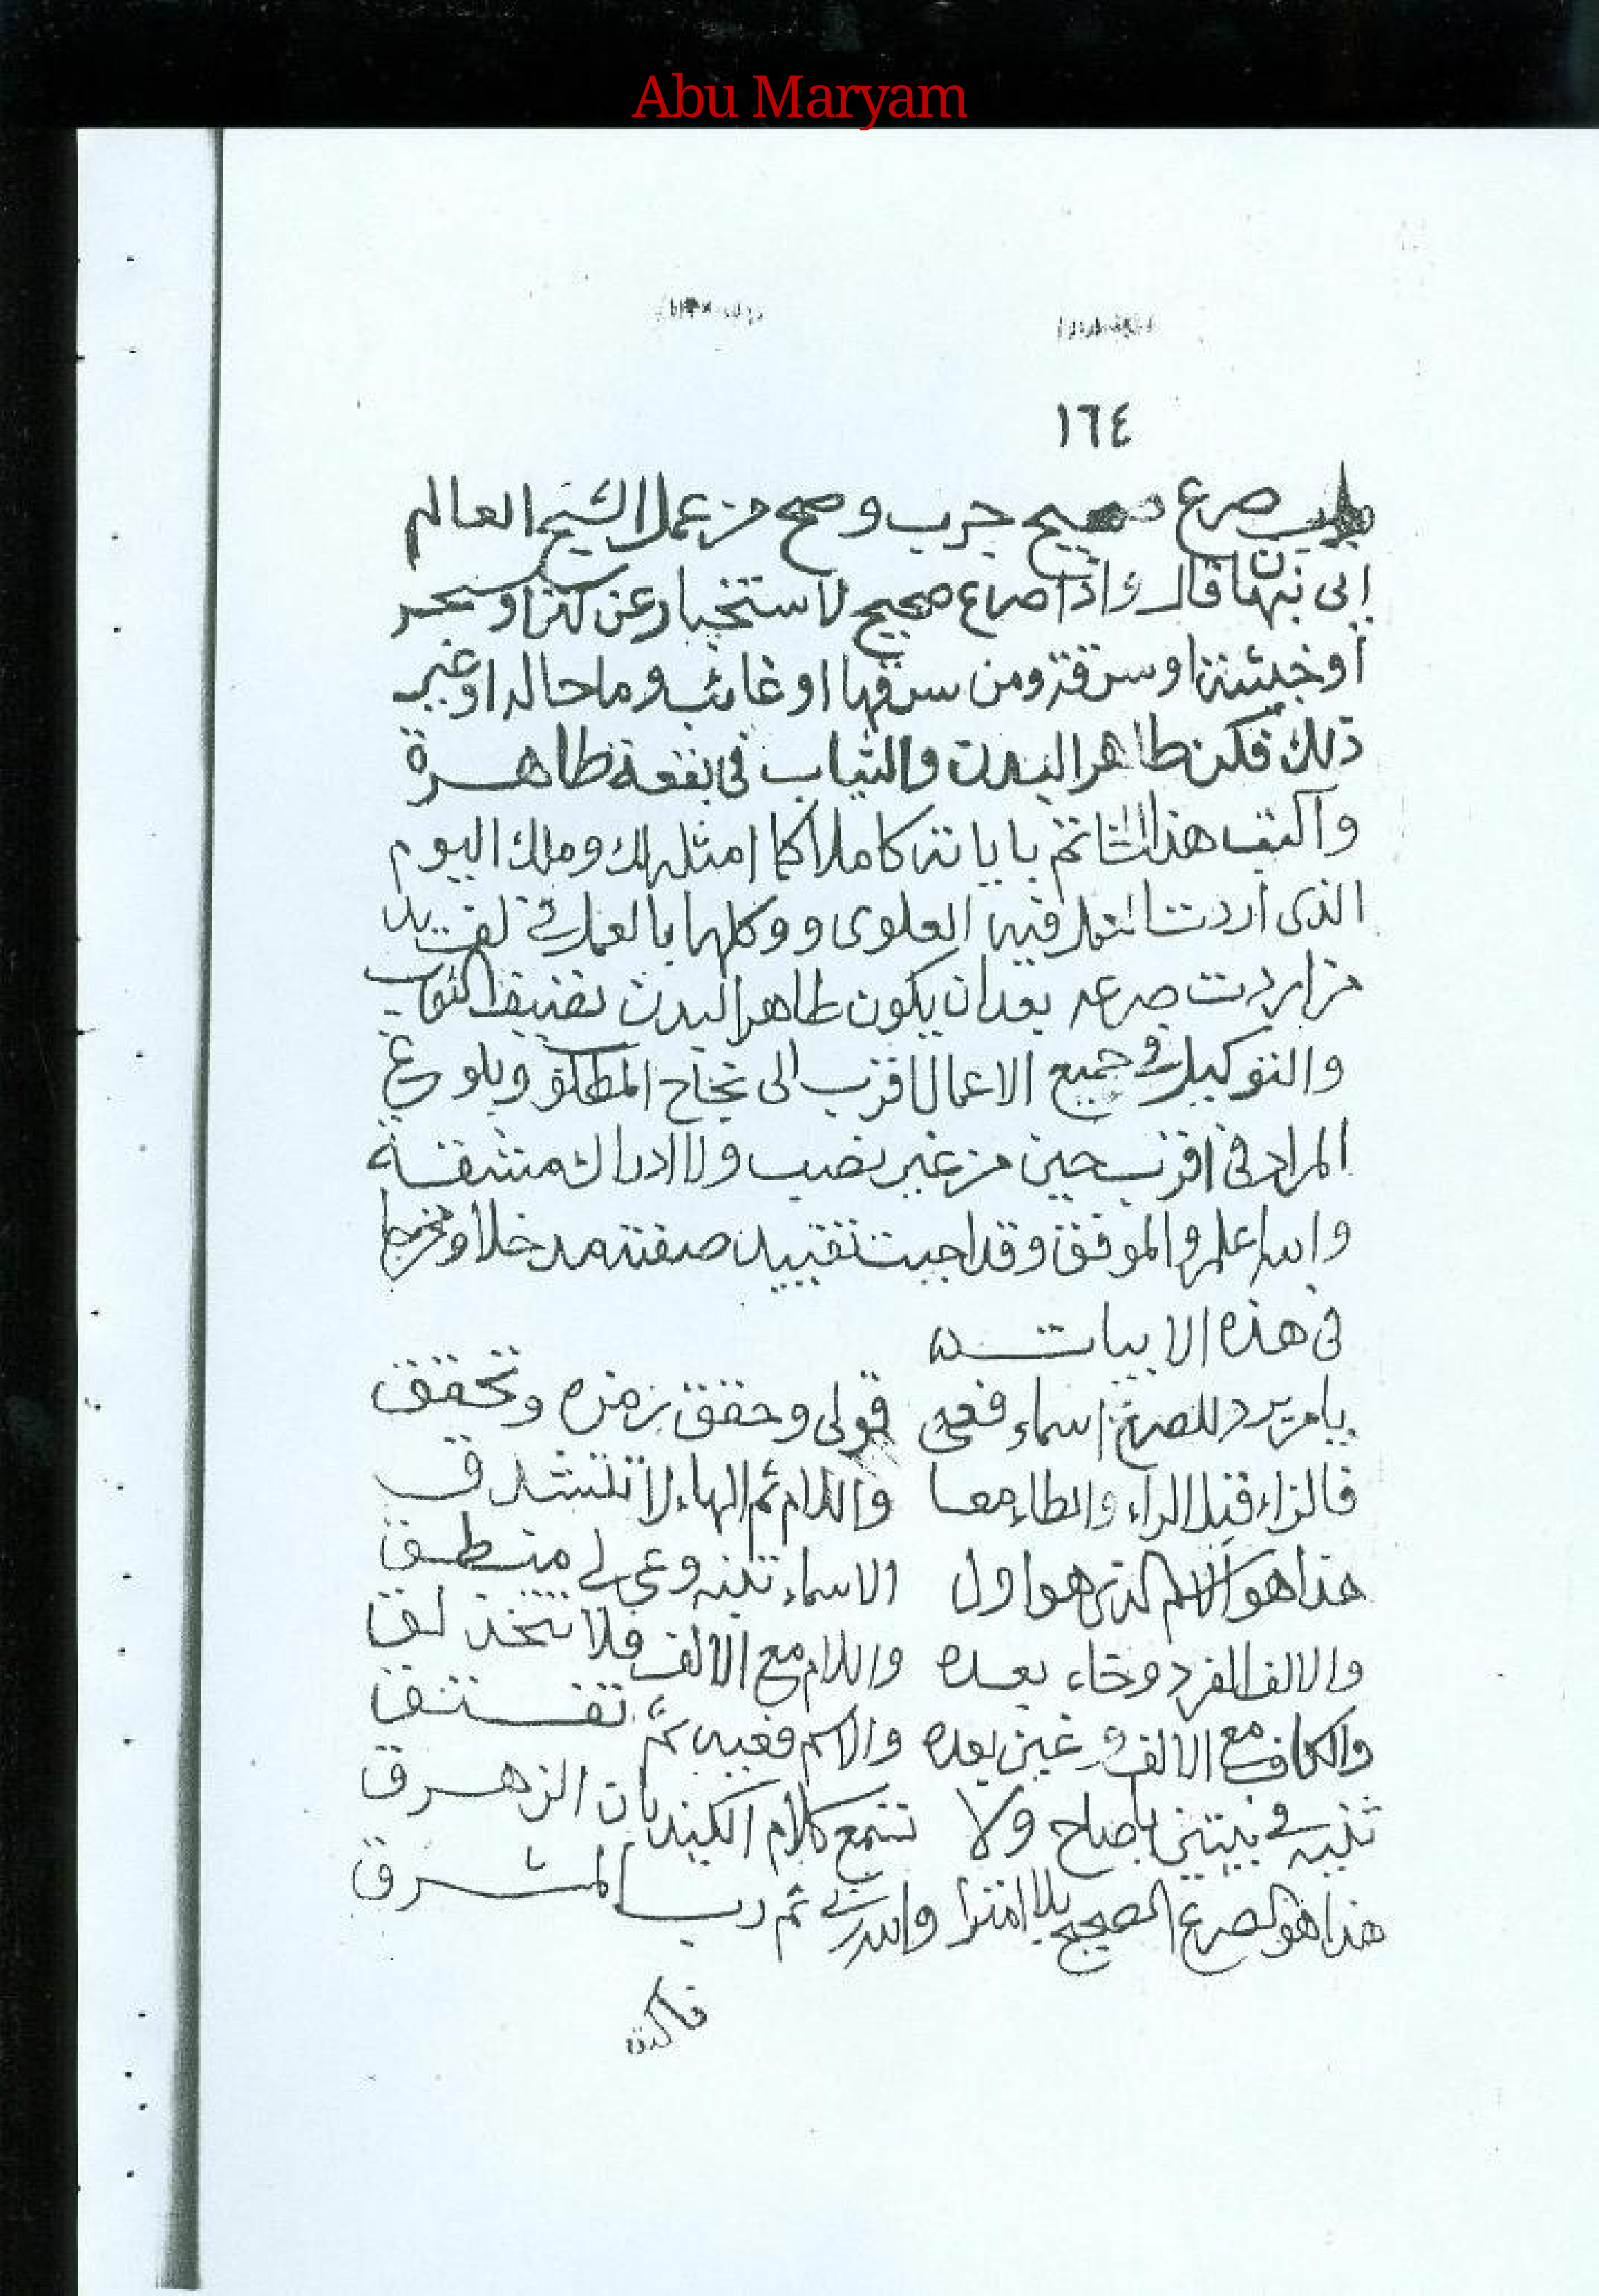 Abu Maryam
١٦٤
صرع صحيح جرب وصح من عمل الشيخ العالم
ابى نبهان قال واذا صراع صحيح لاستخبار عن كنز او سحر
او خبيئة او سرقة ومن سرقها او غائب وما حاله او غير
ذلك فكن طاهر البدن والثياب فى بقعة طاهرة
واكتب هذا الخاتم باياته كاملا كما امثله لك وملك اليوم
الذى اردت العمل فيه العلوى ووكلها بالعمل فى
من اردت صرعه بعد ان يكون طاهر البدن نضيف الثواب
والتوكيل فى جميع الاعمال اقرب الى نجاح المطلوب وبلوغ
المراد فى اقرب حين من غير نصب ولا ادراك مشقة
والله اعلم والموفق وقد احببت تقييد صفته مدخلا ومخرجا
فى هذه الابيات
يا من يريد للصرع اسماء فعى قولى وحقق رمزه وتحقق
فالزاء قبل الراء والطاء معا واللام ثم الهاء لا تتشدق
هذا هو الاسم الذى هو اول الاسماء تلته وعى لى منطق
والالف المفرد وخاء بعده واللام مع الالف فلا
والكاف مع الالف وغين بعده والاسم
فى بيتين ياصاح ولا تسمع كلام
هذا هو الصرع الصحيح بلا امترا والله ربى ثم رب المشرق
فاكتب